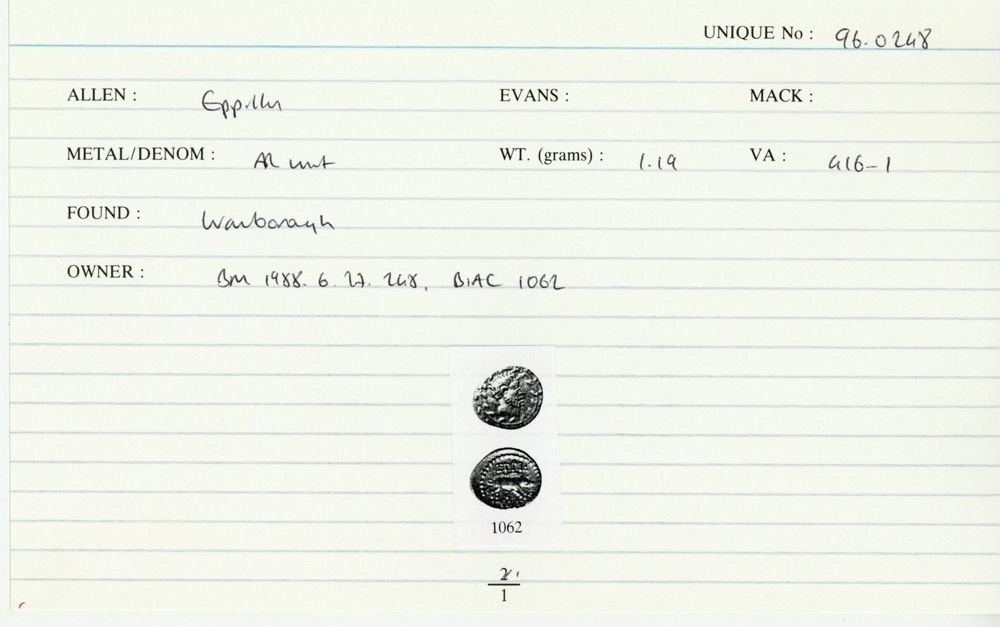 UNIQUE No : 96.0248
ALLEN : Eppillus EVANS : MACK :
METAL/DENOM : AR unit WT. (grams) : 1.19 VA : 416-1
FOUND : Wanborough
OWNER : BM 1988. 6. 27. 248, BIAC 1062
EPPI
1062
2
1